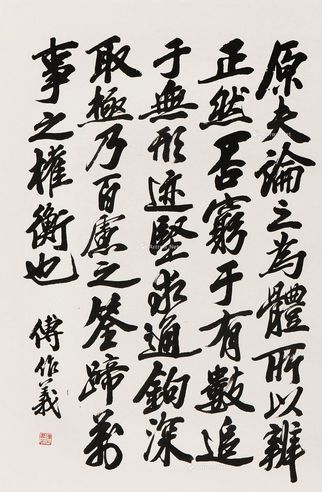 原夫論之為體所以辨
正然否窮于有數追
于無形迹堅求通鉤深
取極乃百慮之筌蹄萬
事之權衡也
傅作義